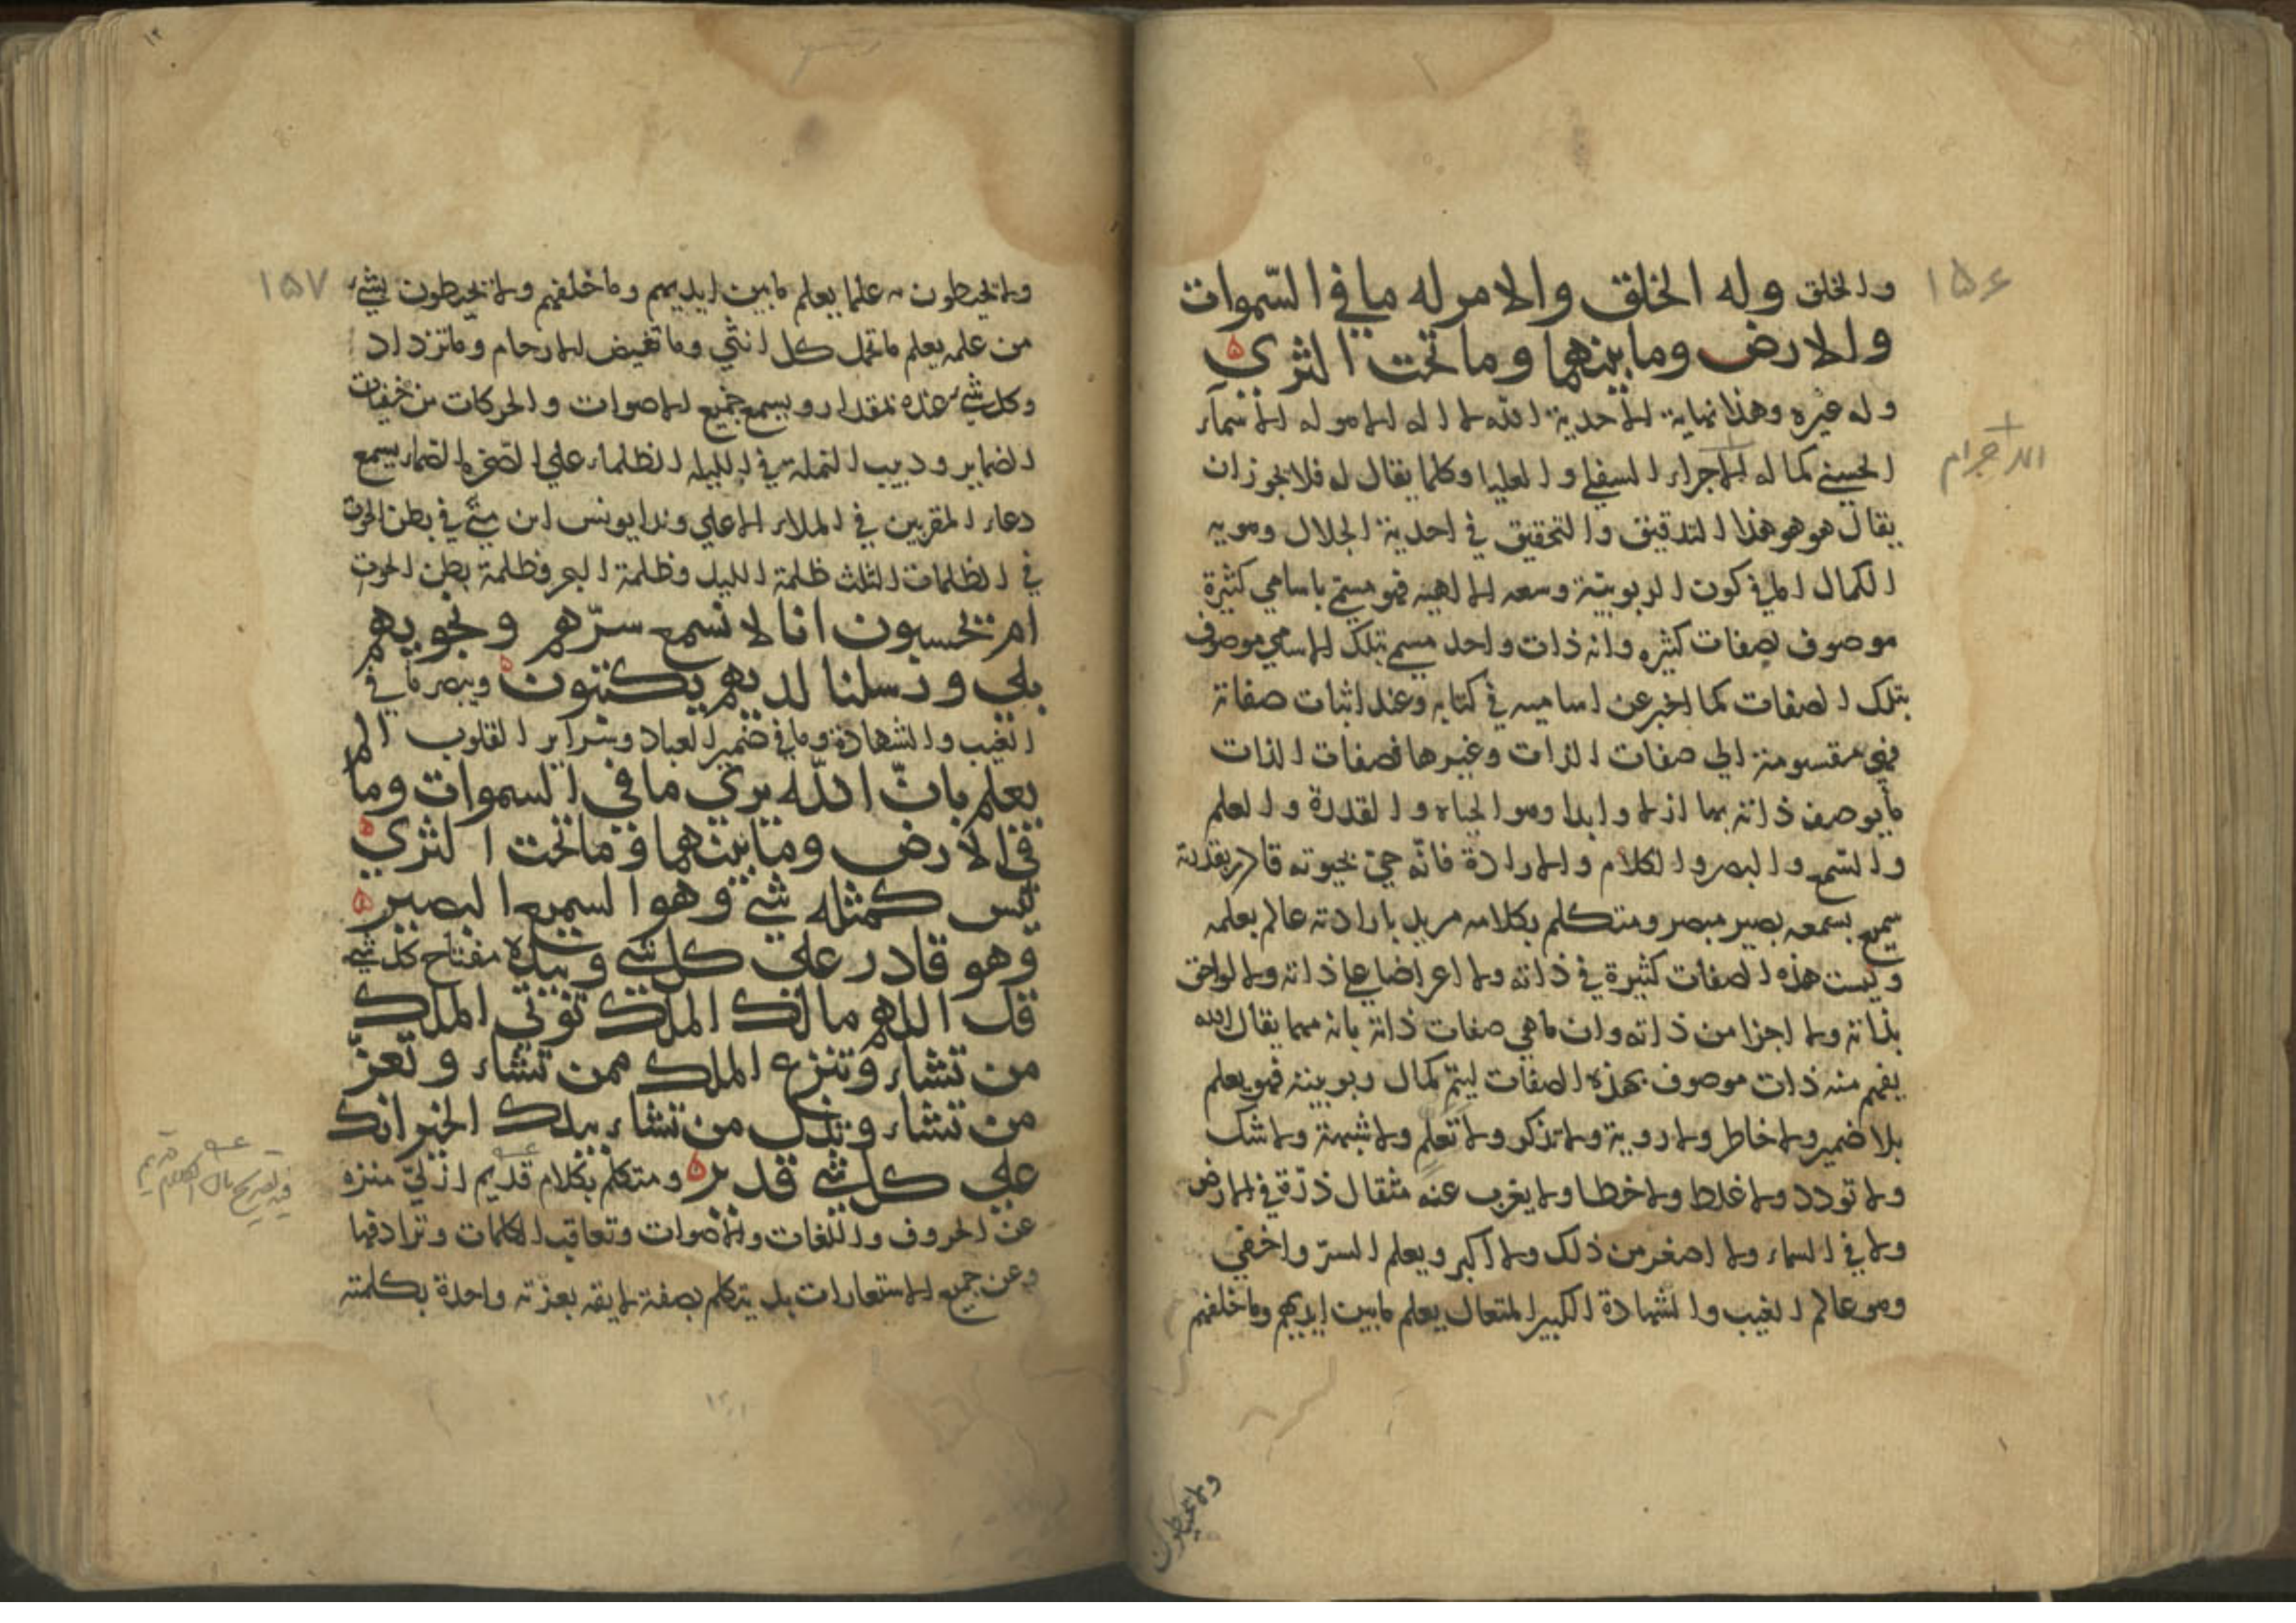 ١٥٦
والخلق وله الخلق والامر له ما في السّموات
والارض وما بينهما وما تحت الثري ه
وله غيره وهذا نهاية الأحدية الله لا اله الا هو له الأسمآء
الحسني كما له الاجرام السفلي والعليا وكلما يقال له فلا يجوز ان
يقال هو هو هذا التدقيق والتحقيق في احدية الجلال وهويه
الكمال في كون الربوبيّة وسعه الالهيه فهو مسمّي باسامي كثيرة
موصوف بصفات كثيره وانه ذات واحد مسمي بتلك الاسامي موصوف
بتلك الصفات كما اخبر عن اساميه في كتابه وعند اثبات صفاته
فهي مقسومة الي صفات الذات وغيرها فصفات الذات
ما يوصف ذاته بها ازلا وابدا وهو الحياه والقدرة والعلم
والسّمع والبصر والكلام والارادة فانّه حيّ بحيوته قادر بقدرته
سميع بسمعه بصير مبصر ومتكلم بكلامه مريد بارادته عالم بعلمه
وليست هذه الصفات كثيرة في ذاته ولا اعراضا علي ذاته ولا لواحق
بذاته ولا اجزا من ذاته وان ما هي صفات ذاته بانه مهما يقال الله
يفهم منه ذات موصوف بهذه الصفات ليتمّ كمال ربوبيته فهو يعلم
بلا ضمير ولا خاطر ولا روية ولا تذكر ولا تعلم ولا شبهة ولا شك
ولا تردد ولا غلط ولا خطا ولا يعزب عنه مثقال ذرّة في الارض
ولا في السماء ولا اصغر من ذلك ولا اكبر ويعلم السرّ واخفي
وهو عالم الغيب والشهادة الكبير المتعال يعلم ما بين ايديهم وما خلفهم
ولا يحيطون
١٥٧
ولا يحيطون به علما يعلم ما بين ايديهم وما خلفهم ولا يحيطون بشيء
من علمه يعلم ما تحمل كل انثي وما تغيض الارحام وما تزداد
وكل شيء عنده بمقدار ويسمع جميع الاصوات والحركات من خفيات
الضماير ودبيب النملة في الليله الظلماء علي الصّخره الصماء يسمع
دعاء المقربين في الملاء الاعلي وندا يونس ابن متّي في بطن الحوت
في الظلمات الثلث ظلمة الليل وظلمة البحر وظلمة بطن الحوت
ام تحسبون انا لا نسمع سرّهم ونجويهم
بلي ورسلنا لديهم يكتبون ه ويبصر ما في
الغيب والشهادة وما في ضمير العباد وسراير القلوب الم
يعلم بانّ اللّه يري ما في السموات وما
في الارض وما بينهما وما تحت الثري ه
ليس كمثله شيء وهو السميع البصير ه
وهو قادر علي كل شي وبيده مفتاح كل شي
قل اللهم مالك الملك توتي الملك
من تشاء وتنزع الملك ممن تشاء وتعزّ
من تشاء وتذل من تشاء بيدك الخير انك
علي كل شي قدير ه ومتكلم بكلام قديم ازليّ منزه
عن الحروف واللغات والأصوات وتعاقب الكلمات وترادفها
وعن جميع الاستعارات بل يتكلم بصفة لايقه بعزته واحدة بكلمته